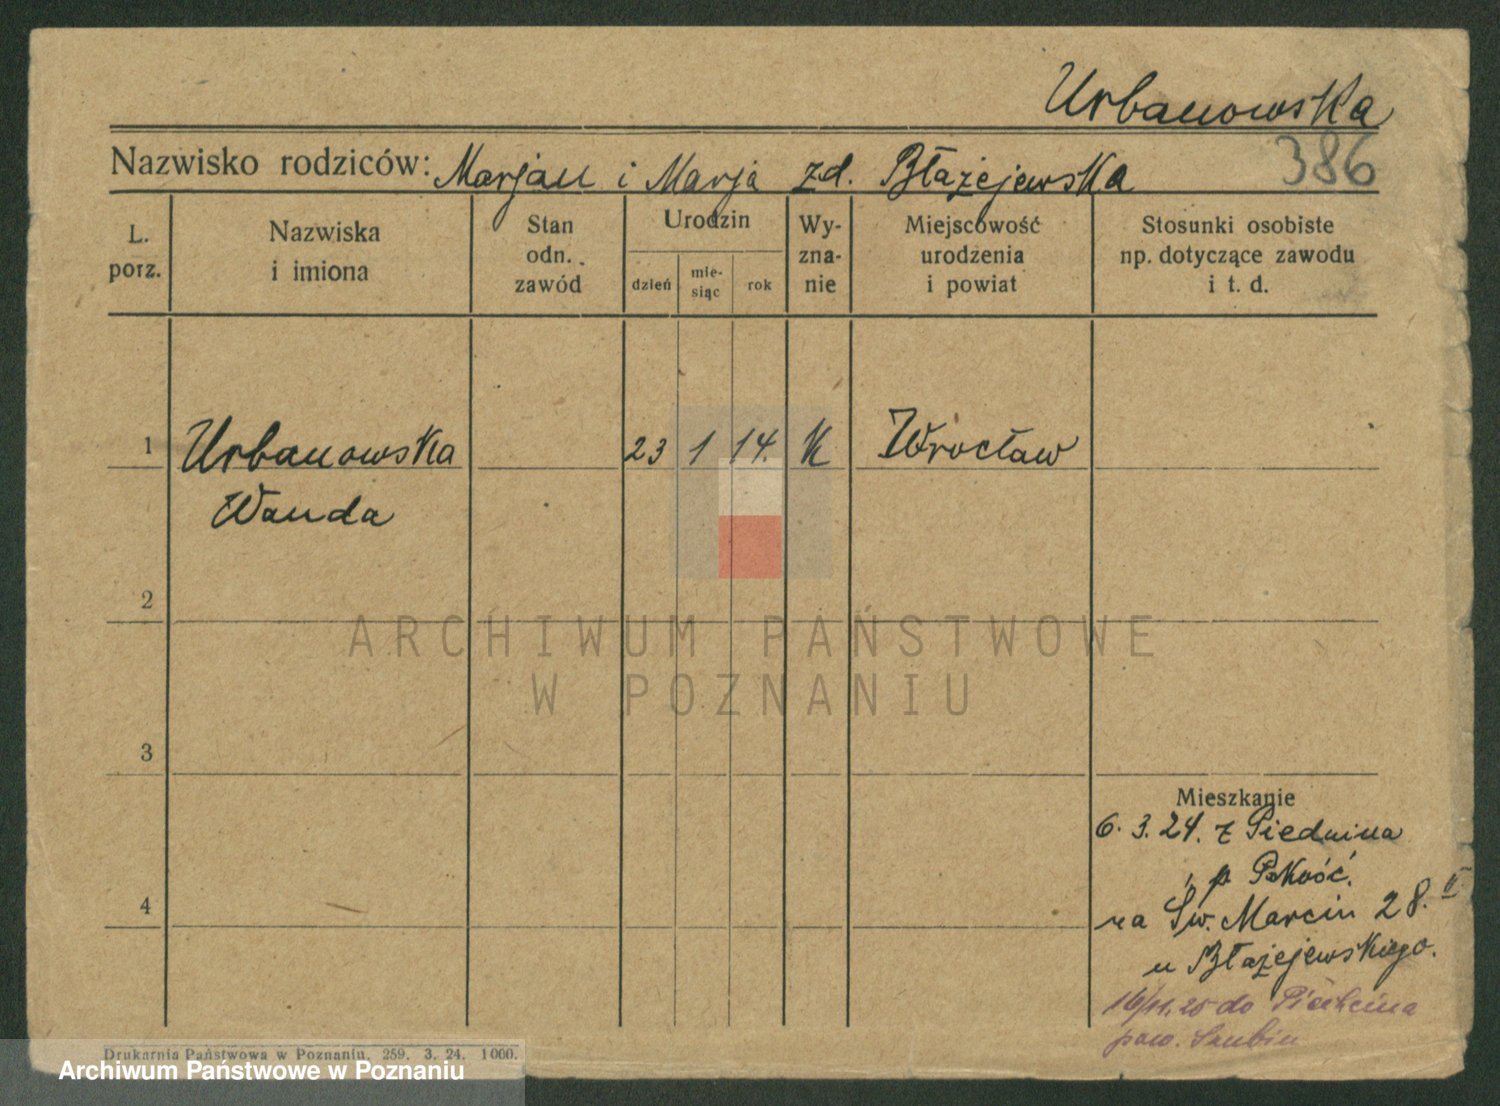 Urbanowska
Nazwisko rodziców: Marjan i Marja zd. Błażejewska
386
L. porz.
Nazwiska i imiona
Stan odn. zawód
Urodzin
dzień
mie- siąc
rok
Wy- zna- nie
Miejscowość urodzenia i powiat
Stosunki osobiste np. dotyczące zawodu i t. d.
1 Urbanowska 23 1 14. K Wrocław
Wanda
2
ARCHIWUM PAŃSTWOWE
W POZNANIU
3
Mieszkanie
6. 3. 24. z
p Pakość.
4
na Św. Marcin 28. II
u Błażejewskiego.
16/11.25 do Piechcina
pow. Szubin
Drukarnia Państwowa w Poznaniu. 259. 3. 24. 1000.
Archiwum Państwowe w Poznaniu